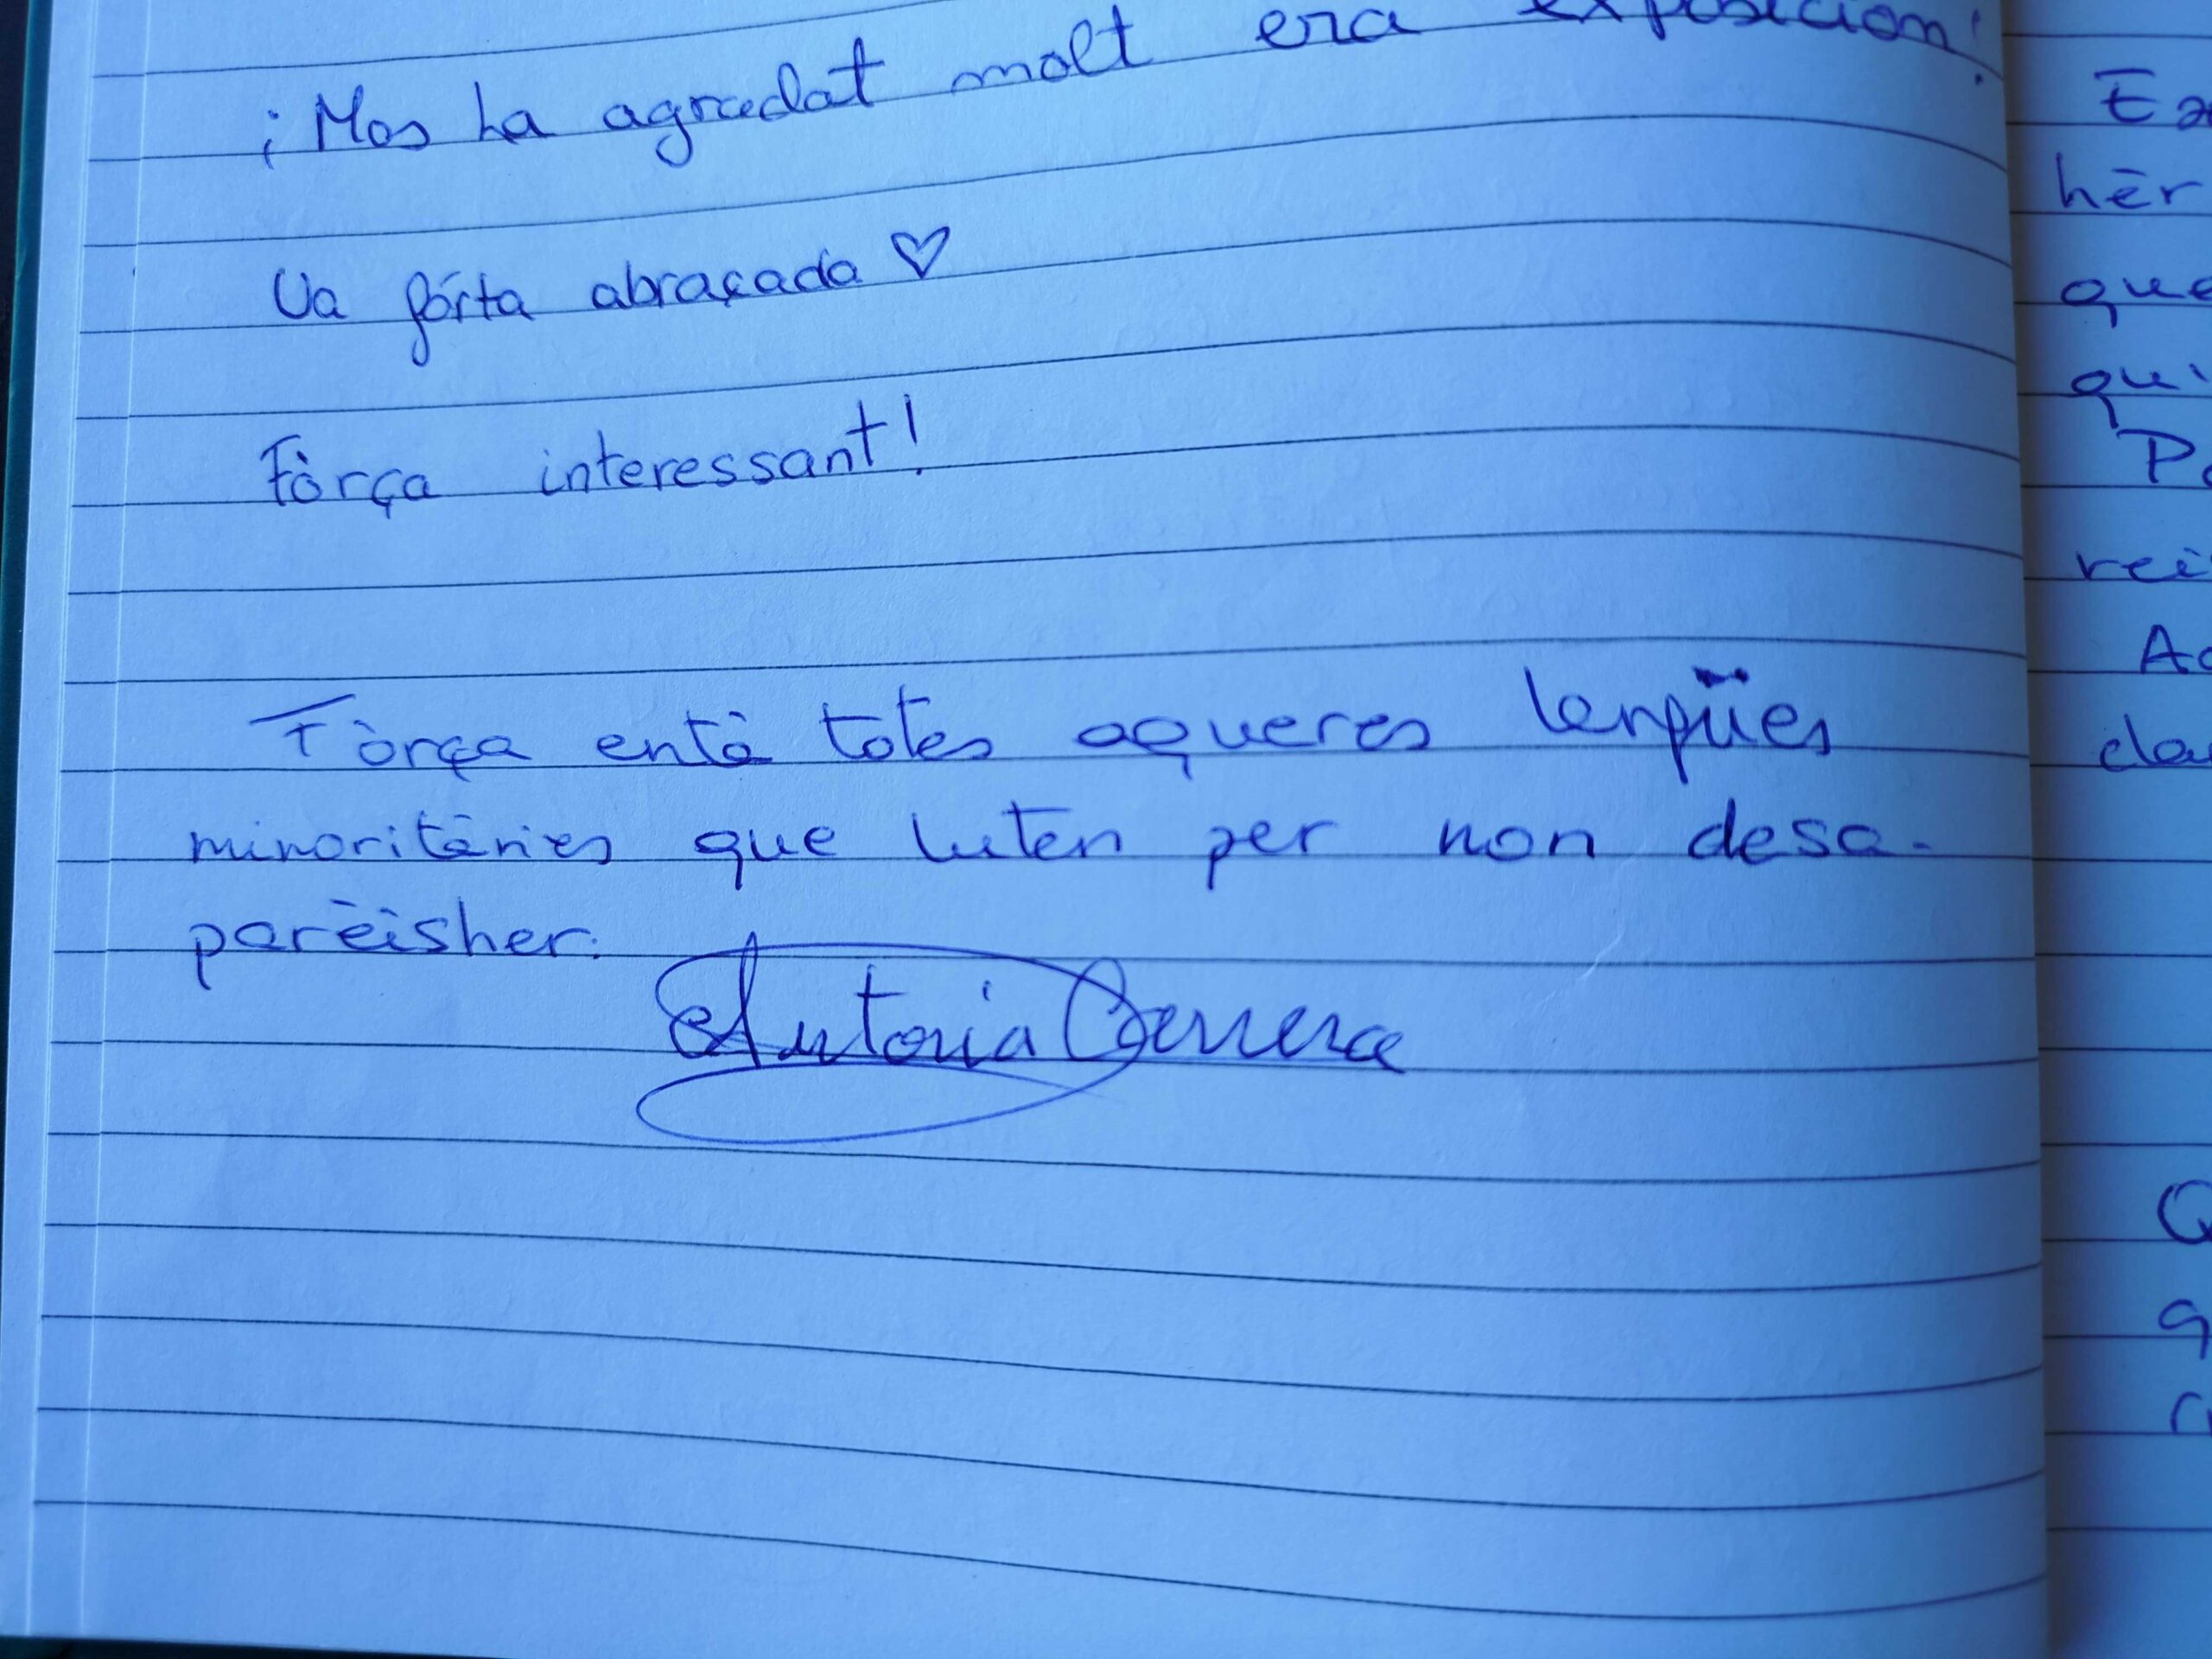 ¡Mos ha agradat molt era exposicion!
Ua fórta abraçada ♡
Fòrça interessant!
Fòrça entà totes aqueres lengües
minoritàries que luten per non desa-
parèisher.
Antonia
hèr